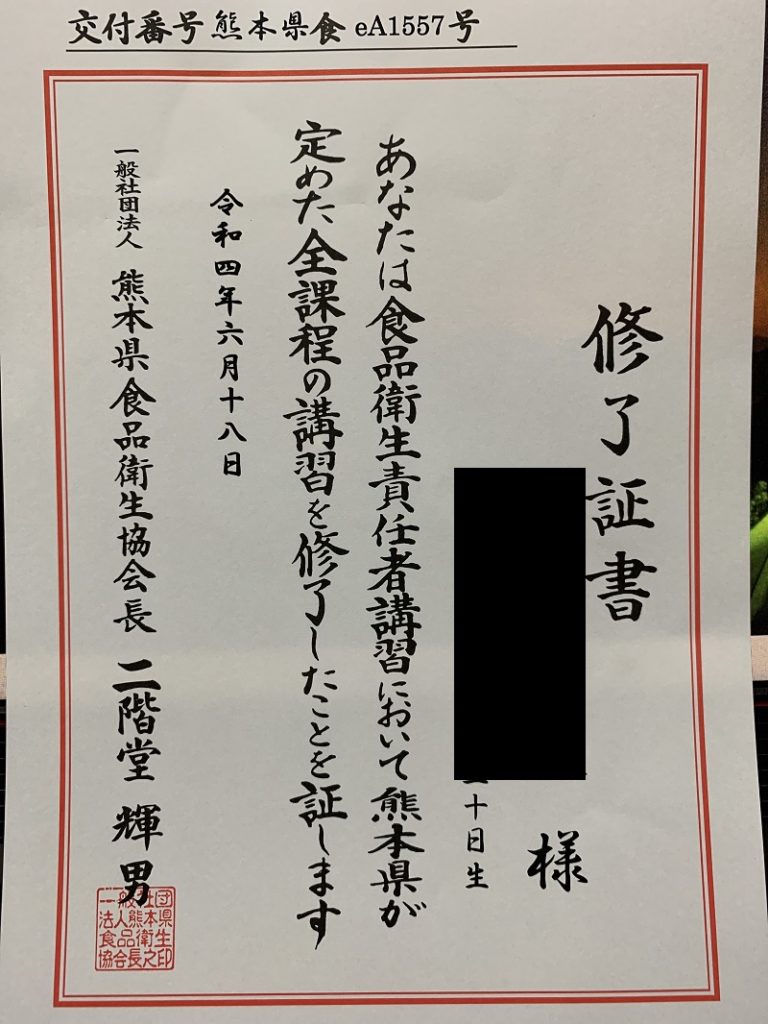 交付番号 熊本県食 eA1557号
修了証書
様
十日生
あなたは食品衛生責任者講習において熊本県が
定めた全課程の講習を修了したことを証します
令和四年六月十八日
一般社団法人 熊本県食品衛生協会長 二階堂 輝男
一般社団
法人熊本県
食品衛生
協会長之印